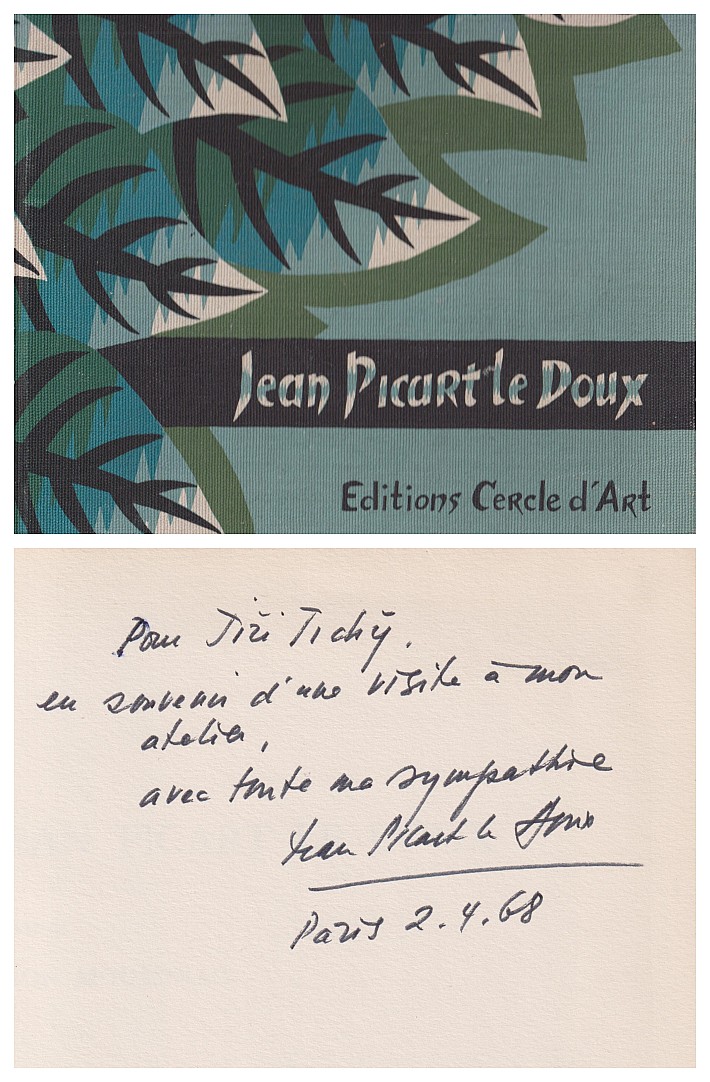 Jean Picart le Doux
Editions Cercle d'Art
Pour Jiří Tichý,
en souvenir d'une visite à mon
atelier,
avec toute ma sympathie
Jean Picart le Doux
Paris 2.4.68